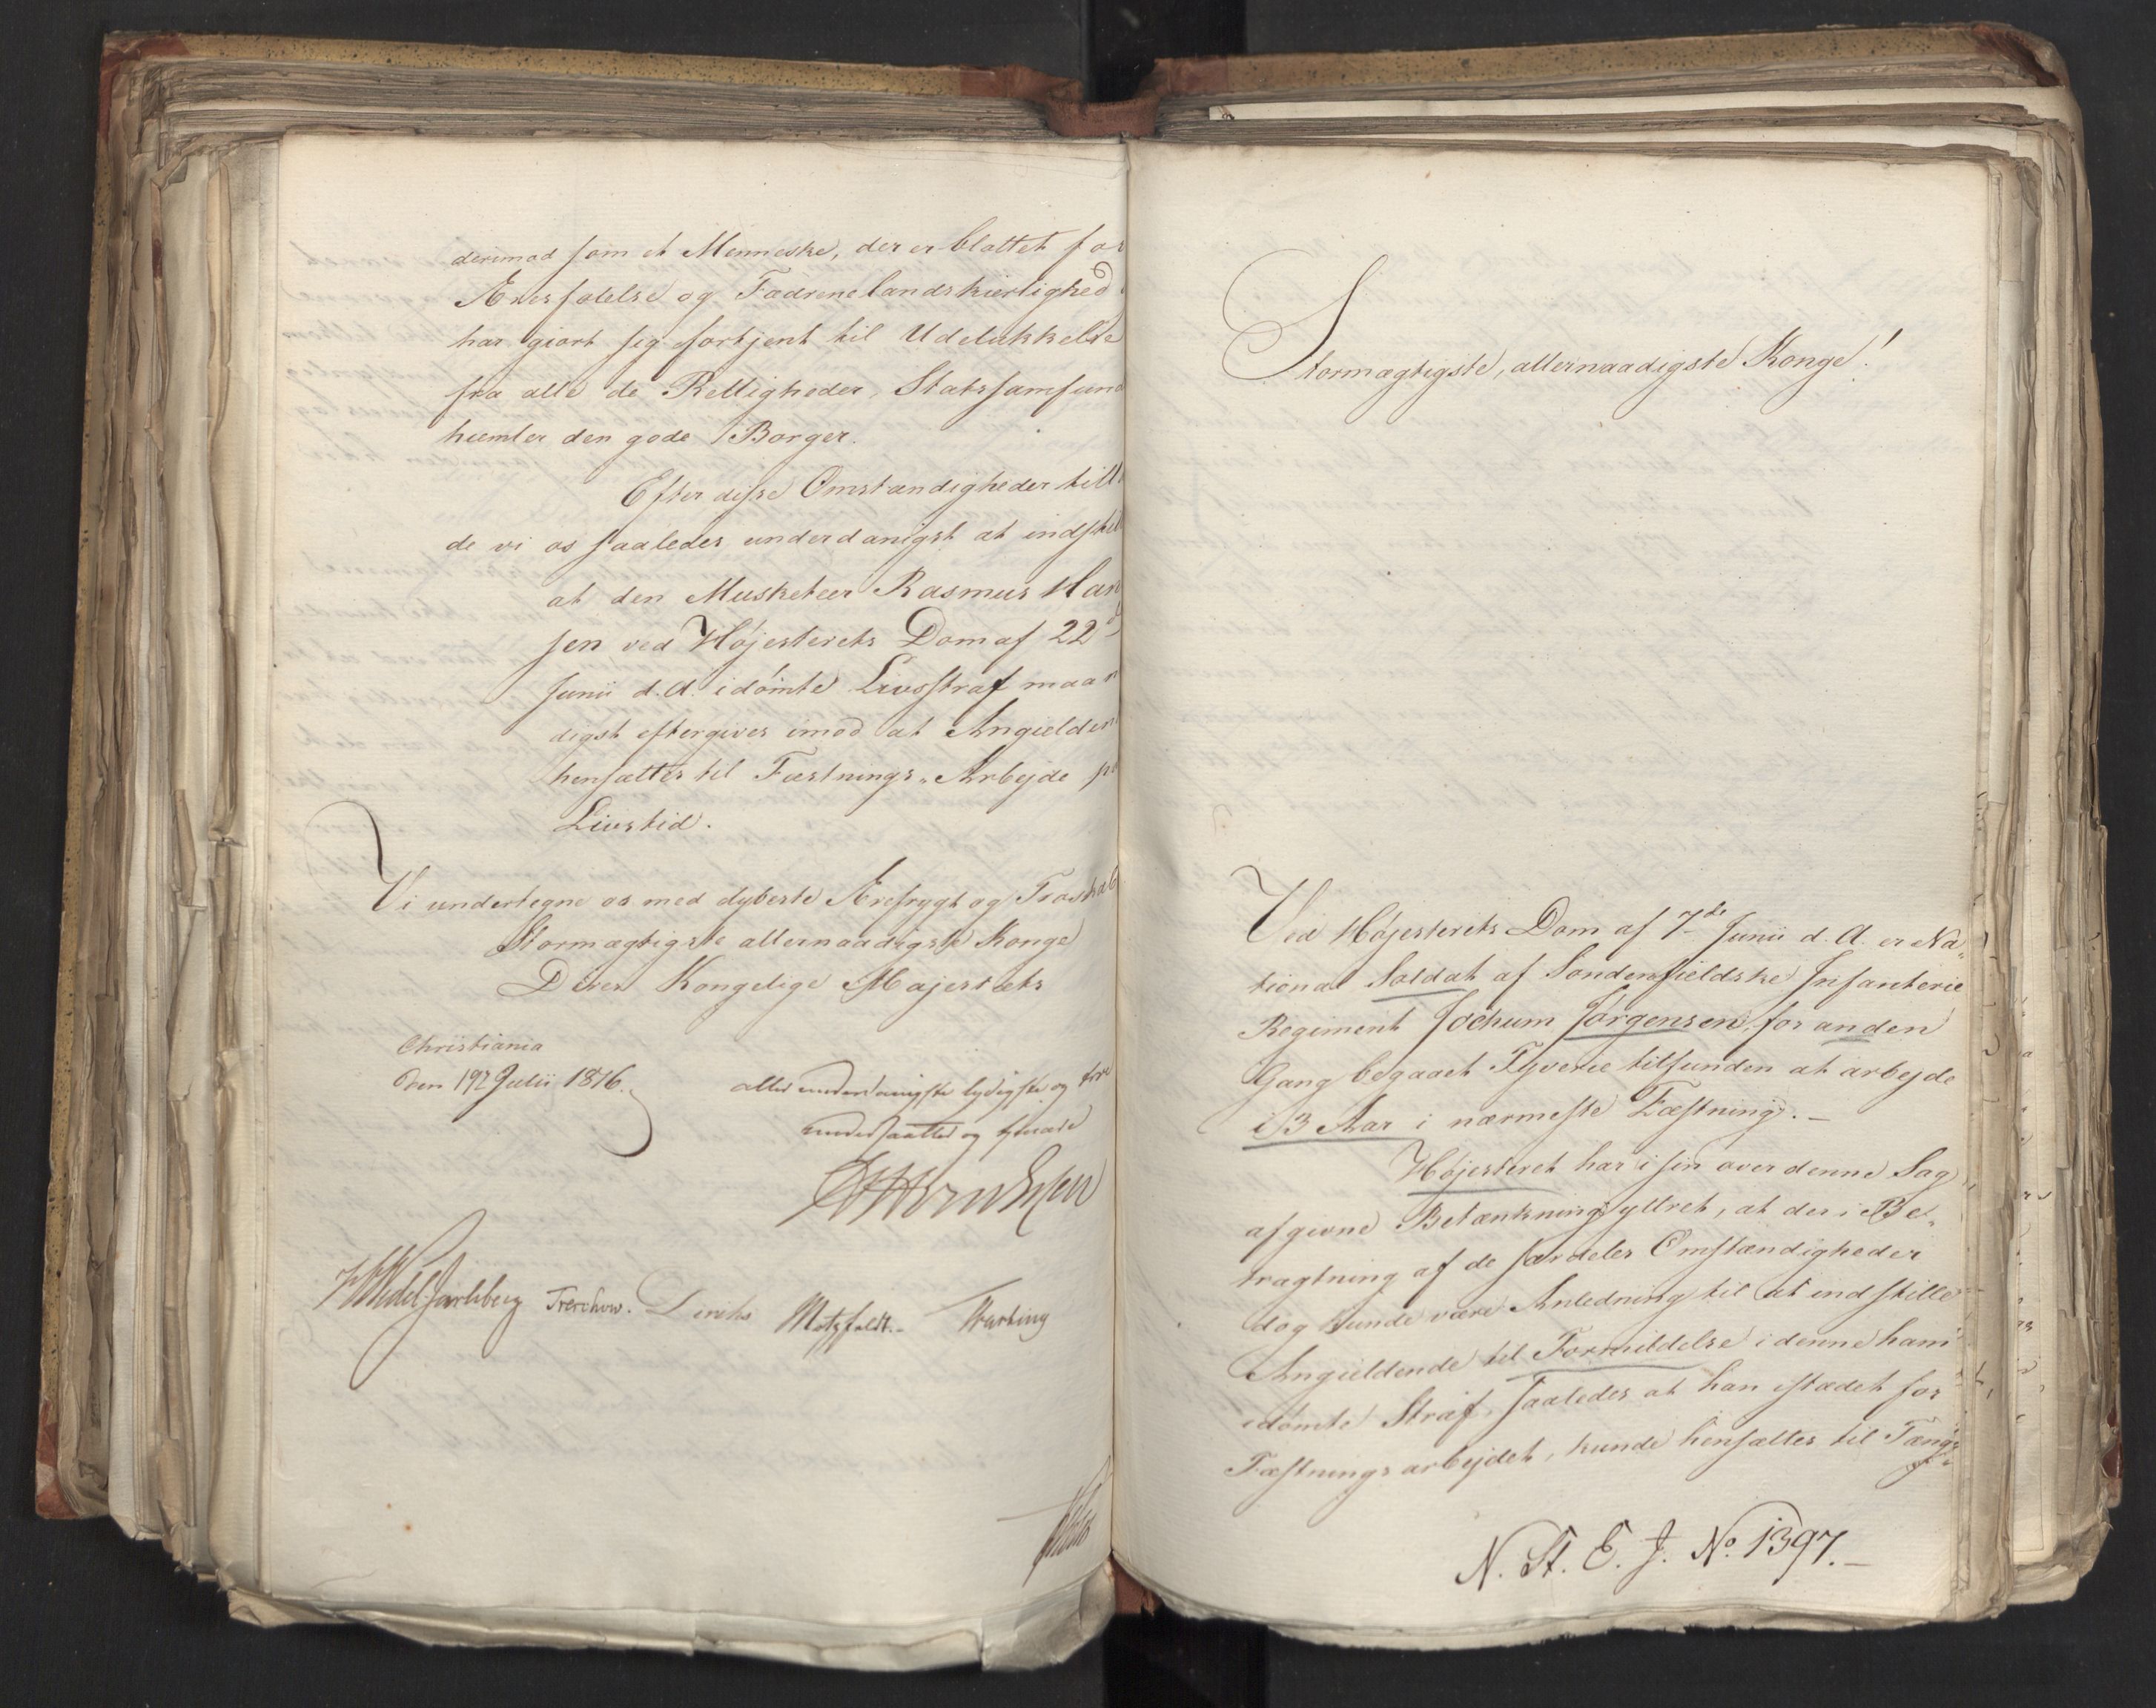 derimod som et Menneske, der er blottet for
Æresfølelse og Fædrenelandskierlighed
har giort sig fortjent til Udelukkelse
fra alle de Rettigheder, Statssamfund
hiemler den gode Borger.
Efter disse Omstændigheder till
de vi os saaledes underdanigst at indstil
at den Musketeer Rasmus Han
sen ved Højesterets Dom af 22d
Junii d. A. idømte Livsstraf maa n
digst eftergives imod at Angielden
hensættes til Fæstnings-Arbejde p
Livstid.
Vi undertegne os med dybeste Ærefrygt og Troskab
Stormægtigste allernaadigste Konge
Deres Kongelige Majestæts
Christiania
den 19de Julii 1816.
allerunderdanigste lydigste og troe
undersaatter og tjenere
Wedel-Jarlsberg Treschow. Diriks Motzfeldt.-
Stormægtigste, allernaadigste Konge!
Ved Højesterets Dom af 7de Junii d. A. er Na-
tional Soldat af Søndenfieldske Infanterie
Regiment Jochum Jørgensen for anden
Gang begaaet Tyverie tilfunden at arbejde
i 3 Aar i nærmeste Fæstning.-
Højesteret har i sin over denne Sag
afgivne Betænkning yttret, at der i Be-
tragtning af de særdeles Omstændigheder
dog kunde være Anledning til at indstille
Angieldende til Formildelse i denne ham
idømte Straf, saaledes at han istædet for
Fæstningsarbejdet, kunde hensættes til Fæng-
N. St. E. J. No. 1397.-